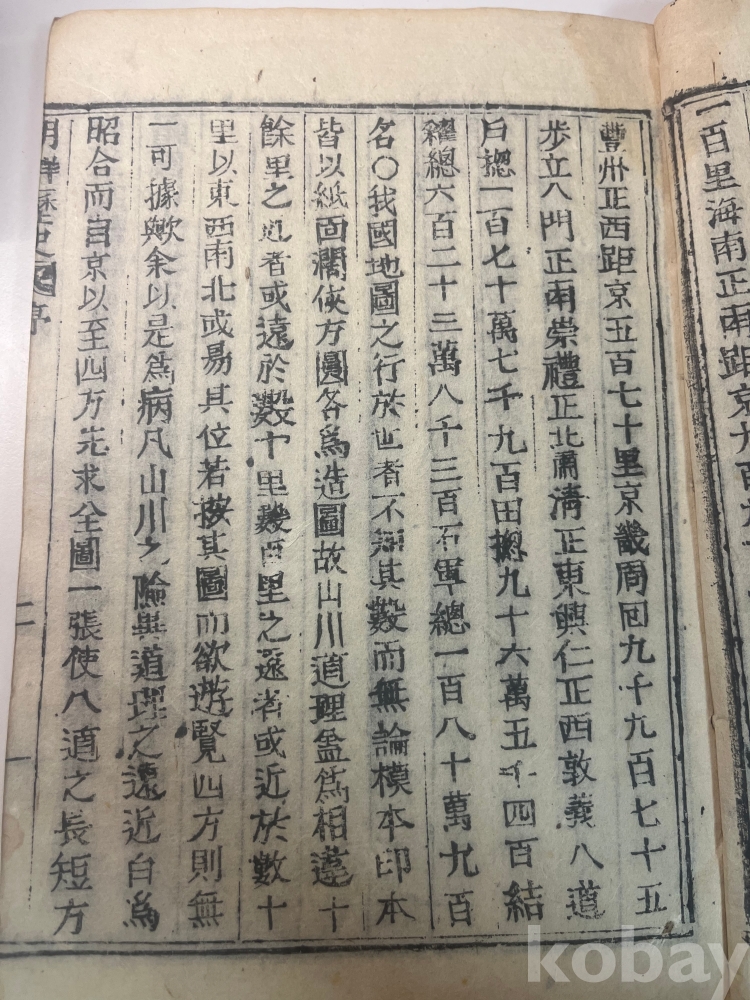 一百里海南正南距京九百
豊州正西距京五百七十里京畿周回九千九百七十五
步立八門正南崇禮正北肅淸正東興仁正西敦義八道
戶摠一百七十萬七千九百田摠九十六萬五千四百結
糶總六百二十三萬八千三百石軍總一百八十萬九百
名〇我國地圖之行於世者不知其數而無論模本印本
皆以紙面濶俠方圓各爲造圖故山川道理盡爲相違十
餘里之近者或遠於數十里數百里之遠者或近於數十
里以東西南北或易其位若按其圖而欲遊覽四方則無
一可據歟余以是爲病凡山川之險與道理之遠近白爲
昭合而自京以至四方先求全圖一張使八道之長短方
序
二
kobay